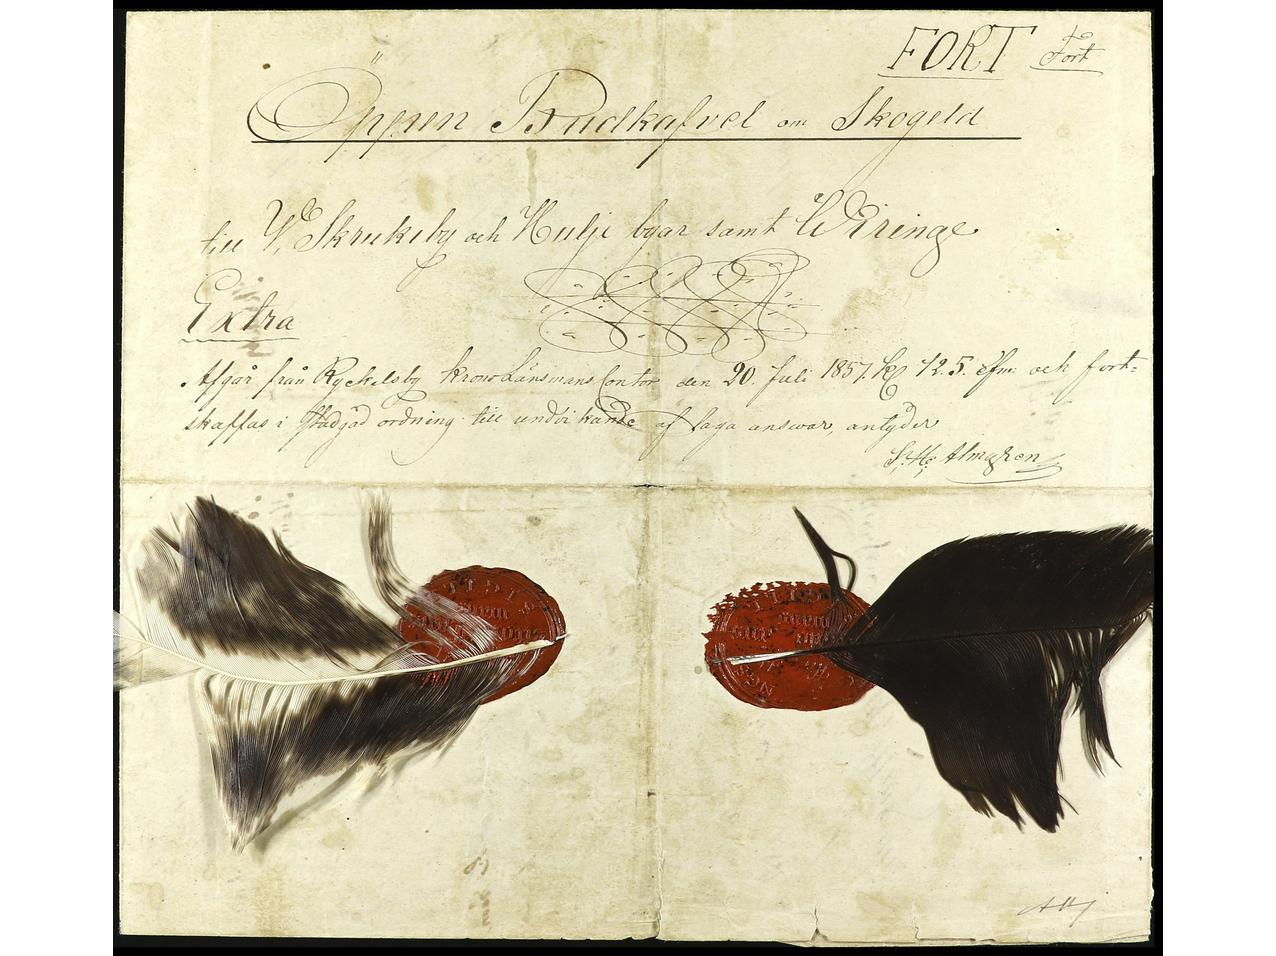 FORT Fort
Öppen Budkafvel om Skogeld
till V. Skrukeby och Hulje byar samt Wiringe
Extra
Afgår från Ryckelsby Krono Länsmans Contor den 20. Juli 1857. Kl 12.5. Efm. och fort=
skaffas i stadgad ordning till undvikande af laga answar, antyder
Almgren